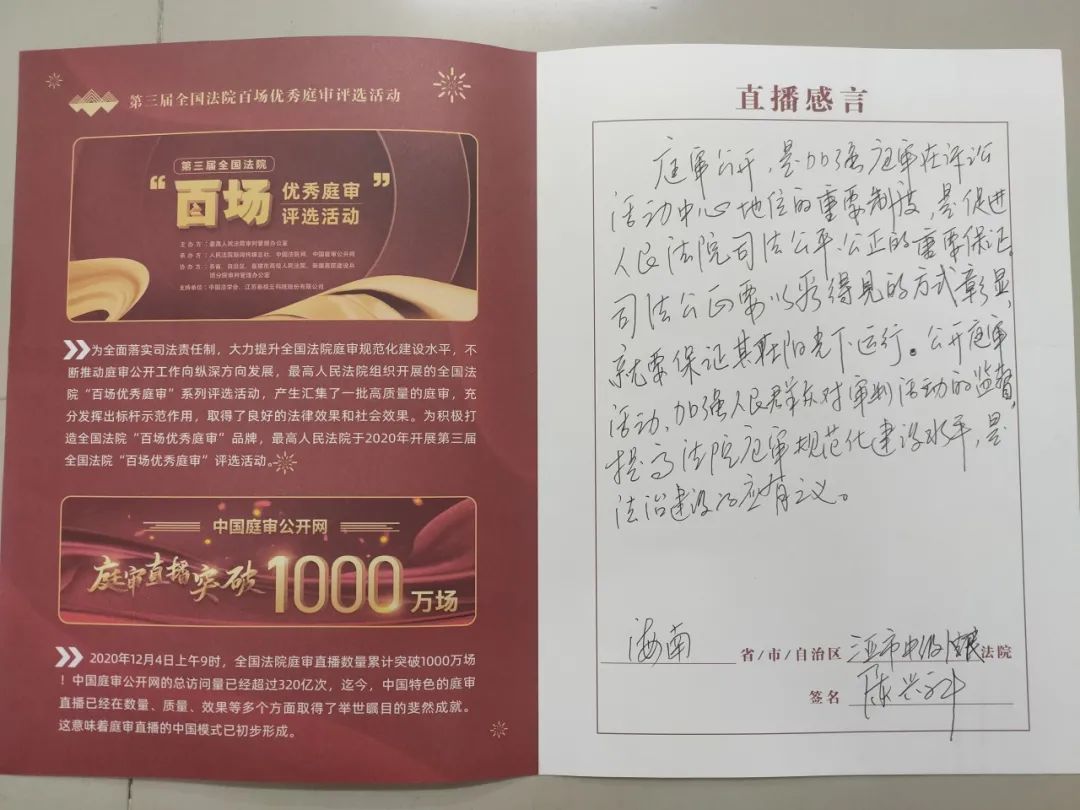 第三届全国法院百场优秀庭审评选活动
第三届全国法院
“百场优秀庭审评选活动”
主办方：最高人民法院审判管理办公室
承办方：人民法院新闻传媒总社、中国法院网、中国庭审公开网
协办方：各省、自治区、直辖市高级人民法院、新疆高院建设兵
团分院审判管理办公室
支持单位：中国法学会、江苏新视云科技股份有限公司
为全面落实司法责任制，大力提升全国法院庭审规范化建设水平，不
断推动庭审公开工作向纵深方向发展，最高人民法院组织开展的全国法
院“百场优秀庭审”系列评选活动，产生汇集了一批高质量的庭审，充
分发挥出标杆示范作用，取得了良好的法律效果和社会效果。为积极打
造全国法院“百场优秀庭审”品牌，最高人民法院于2020年开展第三届
全国法院“百场优秀庭审”评选活动。
中国庭审公开网
庭审直播突破1000万场
2020年12月4日上午9时，全国法院庭审直播数量累计突破1000万场
！中国庭审公开网的总访问量已经超过320亿次，迄今，中国特色的庭审
直播已经在数量、质量、效果等多个方面取得了举世瞩目的斐然成就。
这意味着庭审直播的中国模式已初步形成。
直播感言
庭审公开，是加强庭审在诉讼
活动中心地位的重要制度，是促进
人民法院司法公平、公正的重要保证。
司法公正要以看得见的方式彰显，
就要保证其在阳光下运行。公开庭审
活动，加强人民群众对审判活动的监督，
提高法院庭审规范化建设水平，是
法治建设的应有之义。
海南 省/市/自治区 三亚市中级人民法院
签名 陈兴